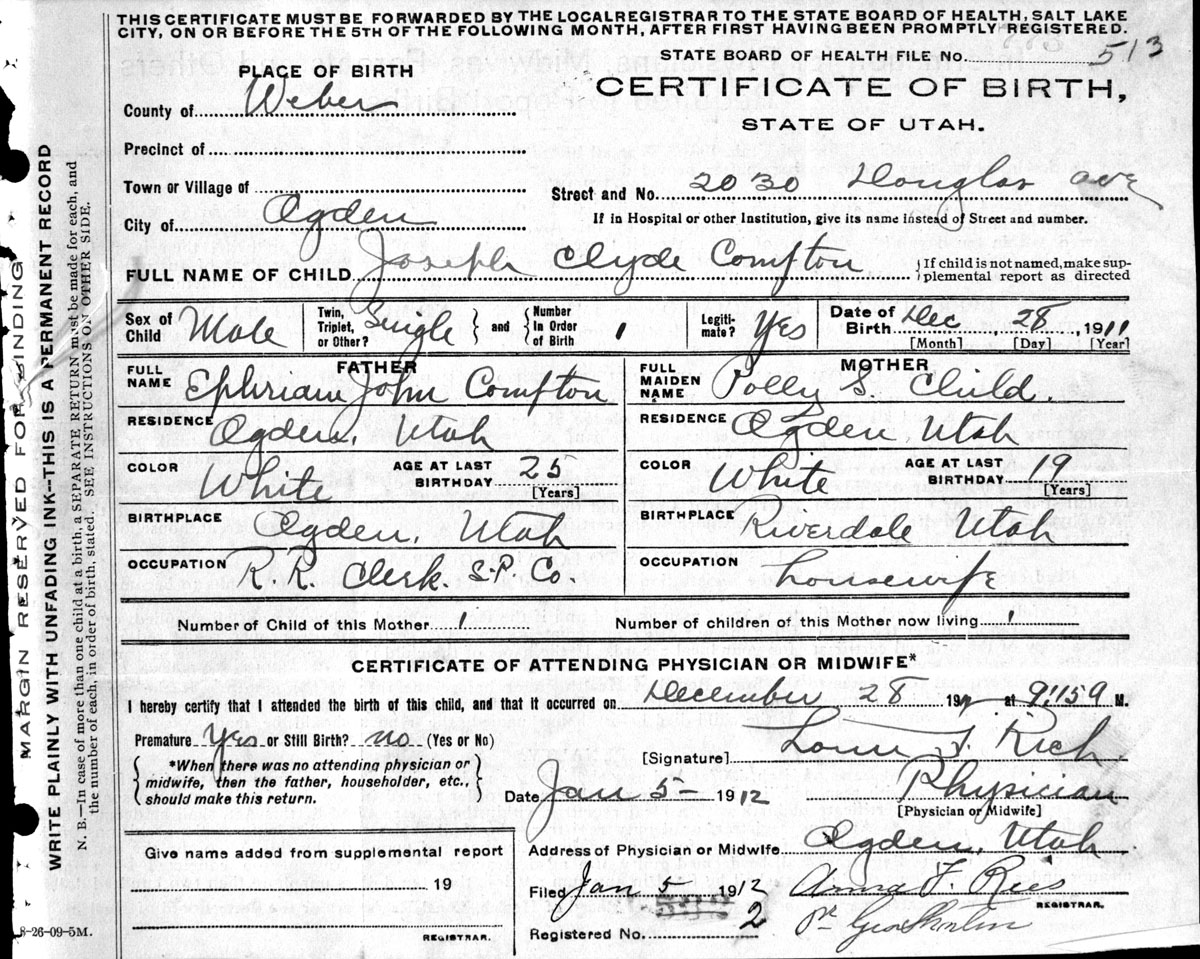 THIS CERTIFICATE MUST BE FORWARDED BY THE LOCAL REGISTRAR TO THE STATE BOARD OF HEALTH, SALT LAKE
CITY, ON OR BEFORE THE 5TH OF THE FOLLOWING MONTH, AFTER FIRST HAVING BEEN PROMPTLY REGISTERED.
STATE BOARD OF HEALTH FILE No. 513
PLACE OF BIRTH
CERTIFICATE OF BIRTH,
STATE OF UTAH.
County of Weber
Precinct of
Town or Village of
Street and No. 2030 Douglas Ave
City of Ogden
If in Hospital or other Institution, give its name instead of Street and number.
FULL NAME OF CHILD Joseph Clyde Compton
If child is not named, make sup-
plemental report as directed
Sex of Child Male
Twin, Triplet, or Other? Single and Number in Order of Birth 1
Legiti-mate? Yes
Date of Birth Dec 28, 1911
[Month] [Day] [Year]
FATHER
FULL NAME Ephriam John Compton
RESIDENCE Ogden, Utah
COLOR White AGE AT LAST BIRTHDAY 25
[Years]
BIRTHPLACE Ogden, Utah
OCCUPATION R.R. Clerk. S-P. Co.
MOTHER
FULL MAIDEN NAME Polly S. Child.
RESIDENCE Ogden, Utah
COLOR White AGE AT LAST BIRTHDAY 19
[Years]
BIRTHPLACE Riverdale Utah
OCCUPATION housewife
Number of Child of this Mother 1 Number of children of this Mother now living 1
CERTIFICATE OF ATTENDING PHYSICIAN OR MIDWIFE*
I hereby certify that I attended the birth of this child, and that it occurred on December 28 191 at 9:159 M.
Premature Yes or Still Birth? no (Yes or No)
*When there was no attending physician or
midwife, then the father, householder, etc.,
should make this return.
[Signature] T. Rich
Date Jan 5- 1912 Physician
[Physician or Midwife]
Address of Physician or Midwife Ogden, Utah
Give name added from supplemental report
19
REGISTRAR.
Filed Jan 5 1912 Anna F. Rees
REGISTRAR.
Registered No. 2
8-26-09-5M.
MARGIN RESERVED FOR BINDING
WRITE PLAINLY WITH UNFADING INK--THIS IS A PERMANENT RECORD
N. B.—In case of more than one child at a birth, a SEPARATE RETURN must be made for each, and
the number of each, in order of birth, stated. SEE INSTRUCTIONS ON OTHER SIDE.